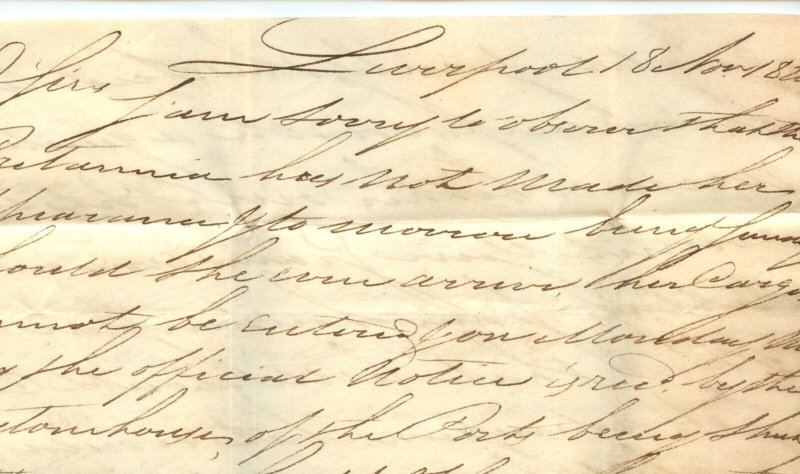 Liverpool 18 Nov 18
Sirs I am sorry to observe that the
Britannia has not made her
to morrow being Sunday
should she even arrive, her Cargo
cannot be entered, & on Monday
the official Notice is recd. by the
Customhouse, of the Ports being Shut